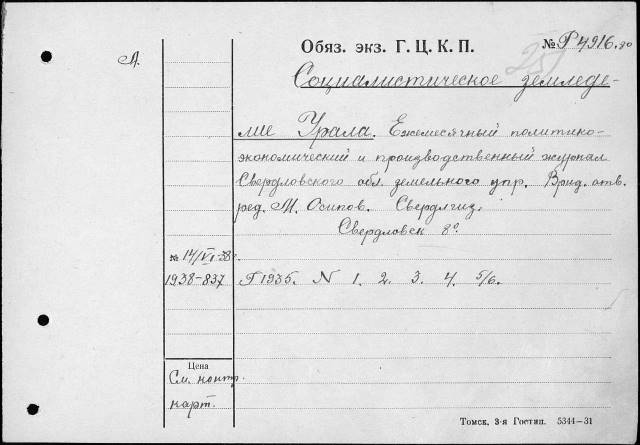 А.
Обяз. экз. Г. Ц. К. П. № Р 4916.30
Социалистическое земледе-
лие Урала. Ежемесячный политико-
экономический и производственный журнал
Свердловского обл. земельного упр. Врид. отв.
ред. М. Осипов. Свердлгиз.
Свердловск 8º.
№ 14/VI-38г.
1938-837 Г 1935. N 1. 2. 3. 4. 5/6.
Цена
См. контр.
карт.
Томск, 3-я Гостип. 5344-31